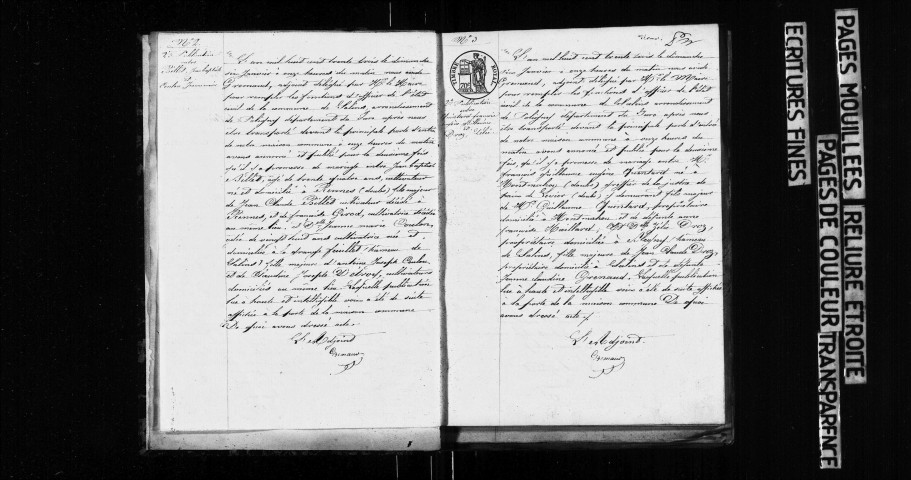 N° 2
2e Publication
entre
Billet, jean baptiste
et
L'an mil huit cent trente trois le dimanche
six Janvier à onze heures du matin nous
Grenaud, adjoint délégué par Mr le Maire
pour remplir les fonctions d'officier de l'état
civil de la commune de Salins, arrondissement
de Poligny département du Jura après nous
être transporté devant la principale porte d'entrée
de notre maison commune à onze heures du matin
avons annoncé et publié pour la deuxième fois
qu'il y a promesse de mariage entre jean baptiste
Billet, agé de trente quatre ans, cultivateur
né et domicilié à Rennes (doubs) fils majeur
de Jean Claude Billet cultivateur décédé à
Rennes, et de françoise Girod, cultivatrice
au même lieu, et Dlle Jeanne marie
agée de vingt huit ans cultivatrice née et
domiciliée à la grange feuillet hameau de
Salins, fille majeure d'antoine Joseph
et de Claudine Josèphe cultivateurs
domiciliés au même lieu. Laquelle publication
lue à haute et intelligible voix a été de suite
affichée à la porte de la maison commune
De quoi avons dressé acte.
L'Adjoint
Grenaud
N° 3
TIMBRE ROYAL
2e Publication
entre
Quintard francois
guillaume
et
Droz, Zélie
L'an mil huit cent trente trois le dimanche
six Janvier à onze heures du matin nous
Grenaud, adjoint délégué par Mr le Maire
pour remplir les fonctions d'officier de l'état
civil de la commune de Salins arrondissement
de Poligny département du Jura après nous
être transporté devant la principale porte d'entrée
de notre maison commune à onze heures du
matin avons annoncé et publié pour la deuxième
fois qu'il y a promesse de mariage entre Mr
François guillaume Quintard né à
Montmahou (doubs) greffier de la justice de
paix de Levier (doubs), y demeurant fils majeur
de Mr Guillaume Quintard, propriétaire
domicilié à Montmahou et de défunte anne
françoise Maillard, Et Dlle Zélie Droz,
propriétaire domiciliée à hameau
de Salins, fille majeure de Jean Claude Droz,
propriétaire domicilié à Salins et de défunte
Jeanne Claudine Grenaud. Laquelle publication
lue à haute et intelligible voix a été de suite affichée
à la porte de la maison commune De quoi
avons dressé acte
L'Adjoint
Grenaud
ECRITURES FINES
PAGES MOUILLEES RELIURE ETROITE
PAGES DE COULEUR TRANSPARENCE